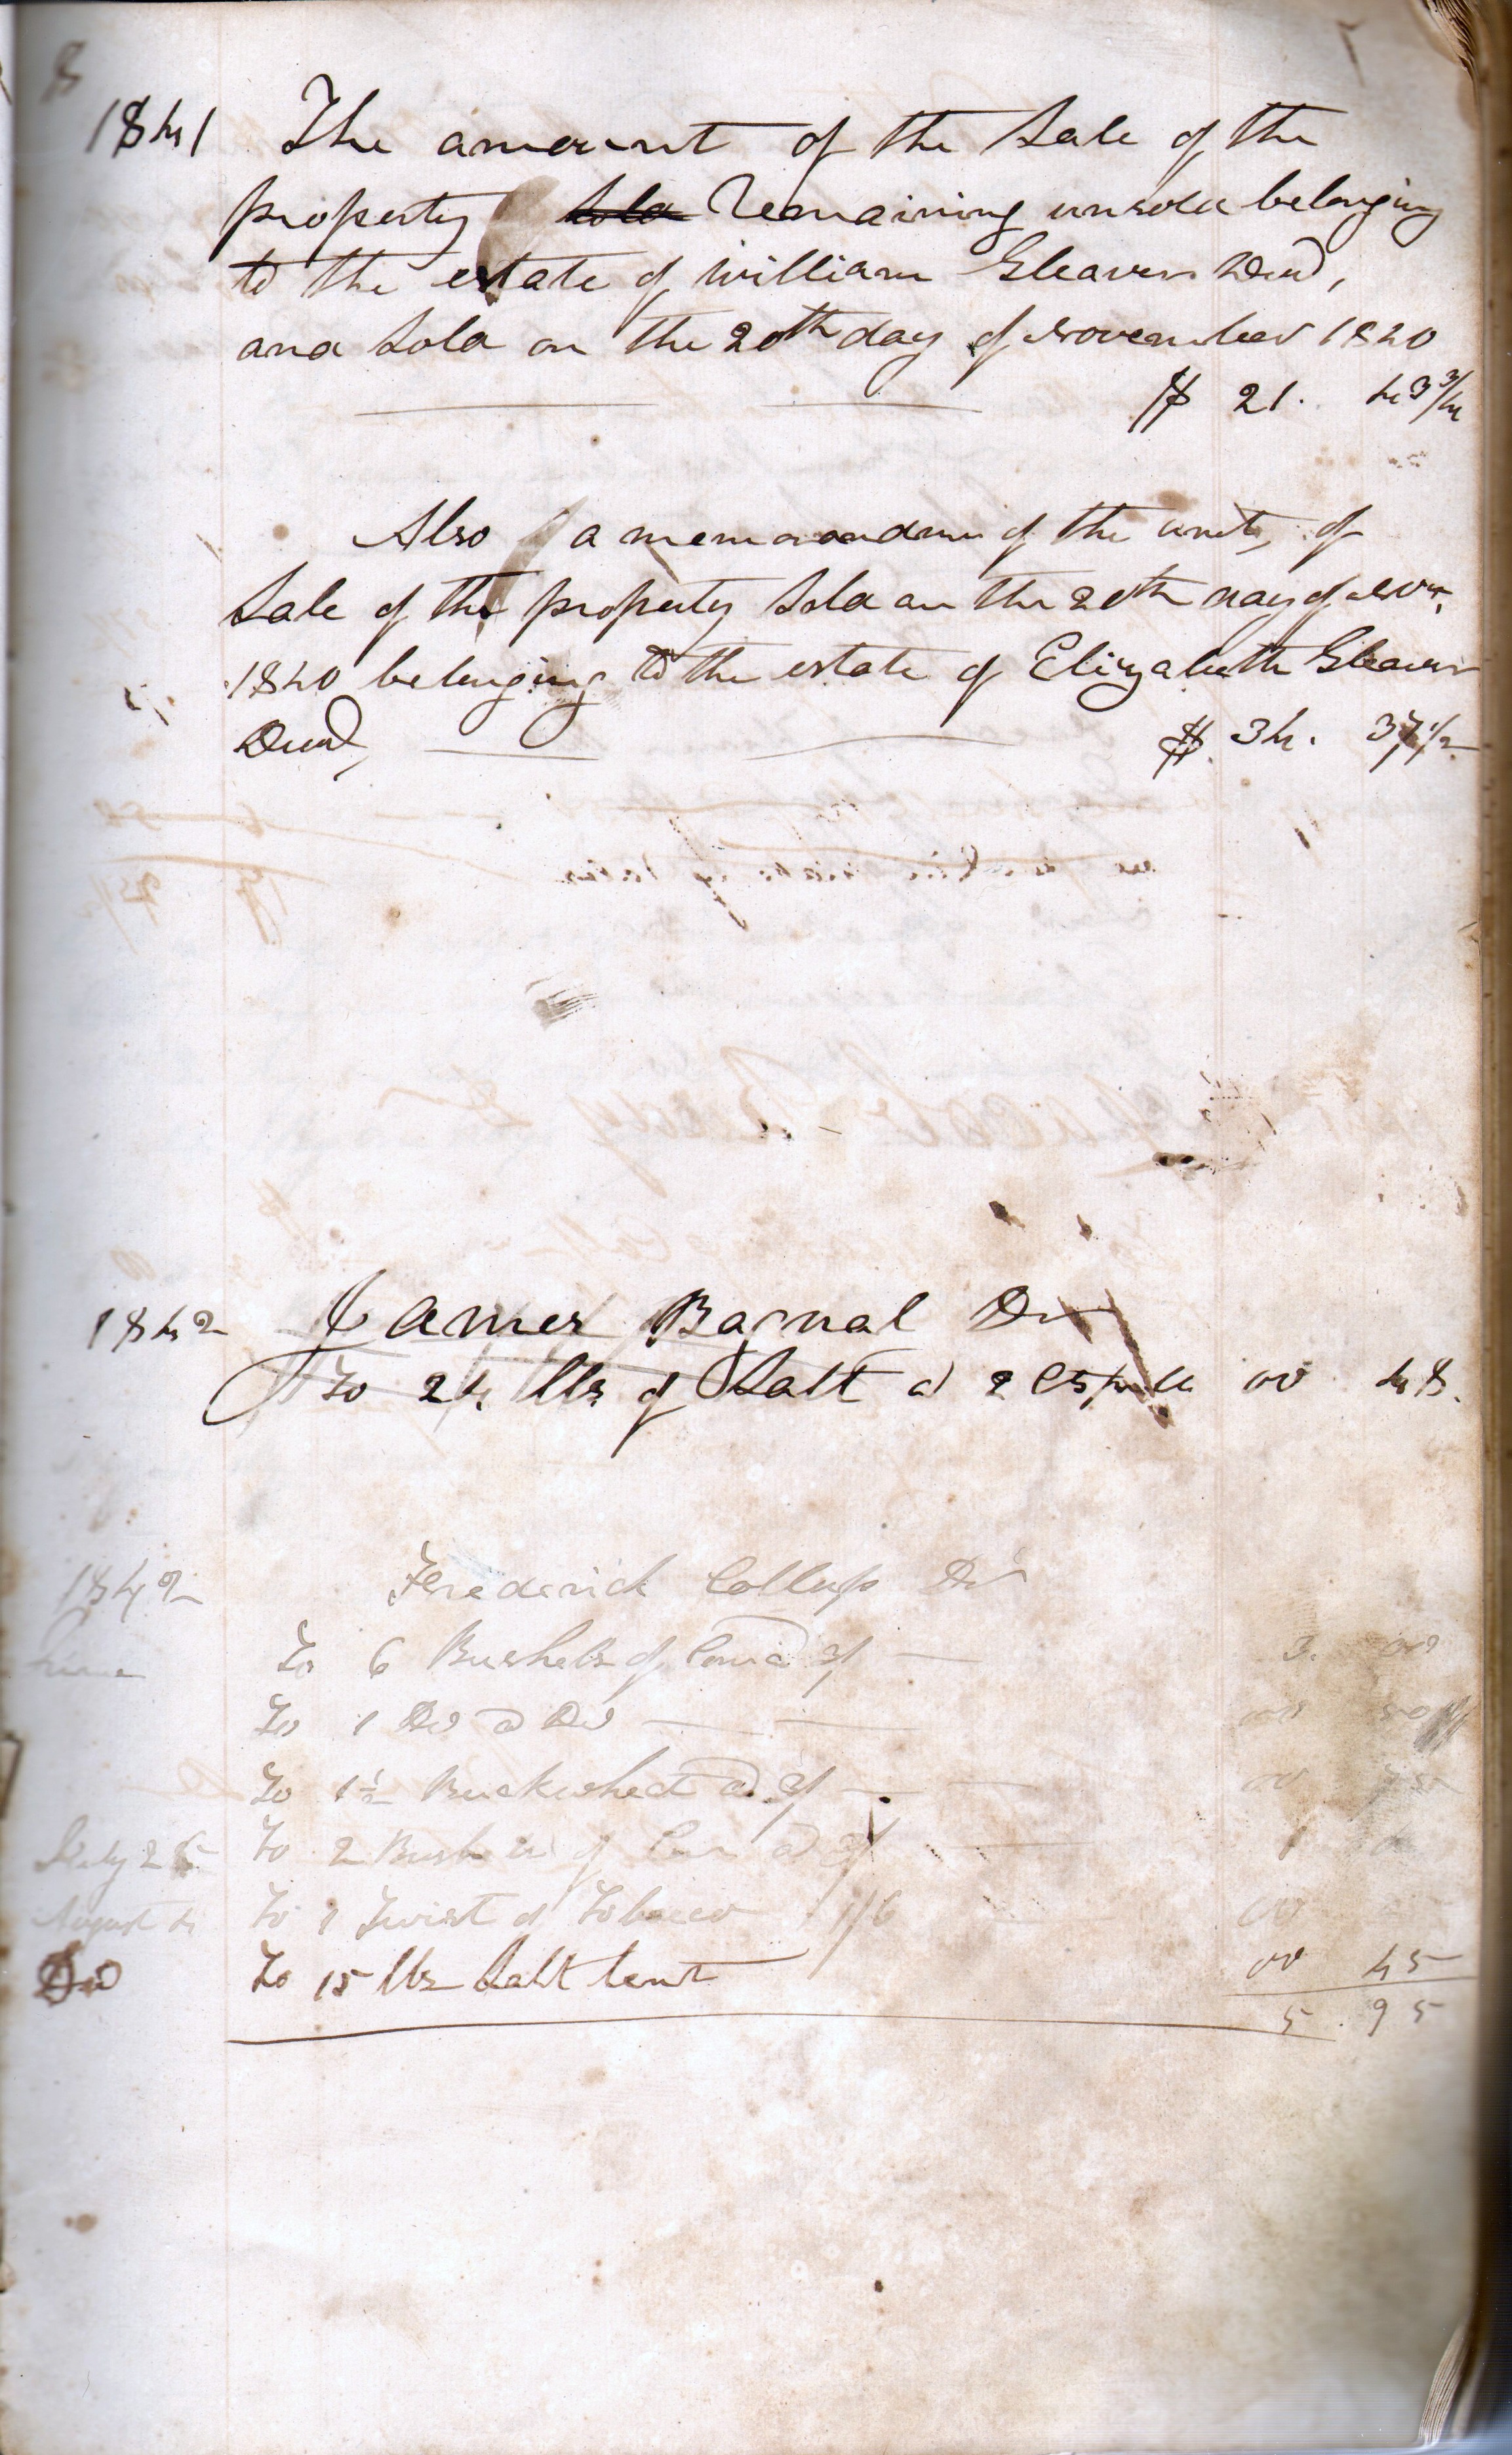 8
1841 The amount of the Sale of the
property sold Remaining unsold belonging
to the estate of William Gleaves Decd,
and Sold on the 20th day of November 1840
$ 21. 43 3/4
Also a memorandum of the amt, of
Sale of the property Sold on the 20th day of Nov,
1840 belonging to the estate of Elizabeth Gleaves
Decd, $ 34. 37 1/2
1842 James Bagnal Dr
To 24 lbs of Salt @ 2 cts pr lb 00 48.
1842 Frederick Collup Dr
June To 6 Bushels of Corn @ 3/ 3. 00
To 1 Do @ Do 00 50
To 1 1/2 Buckwheat @ 3/ 00 75
July 25 To 2 Bushels of Corn @ 3/ 1
August 4 To 1 Twist of Tobacco 1/6 00
Do To 15 lbs Salt lent 00 45
5. 95